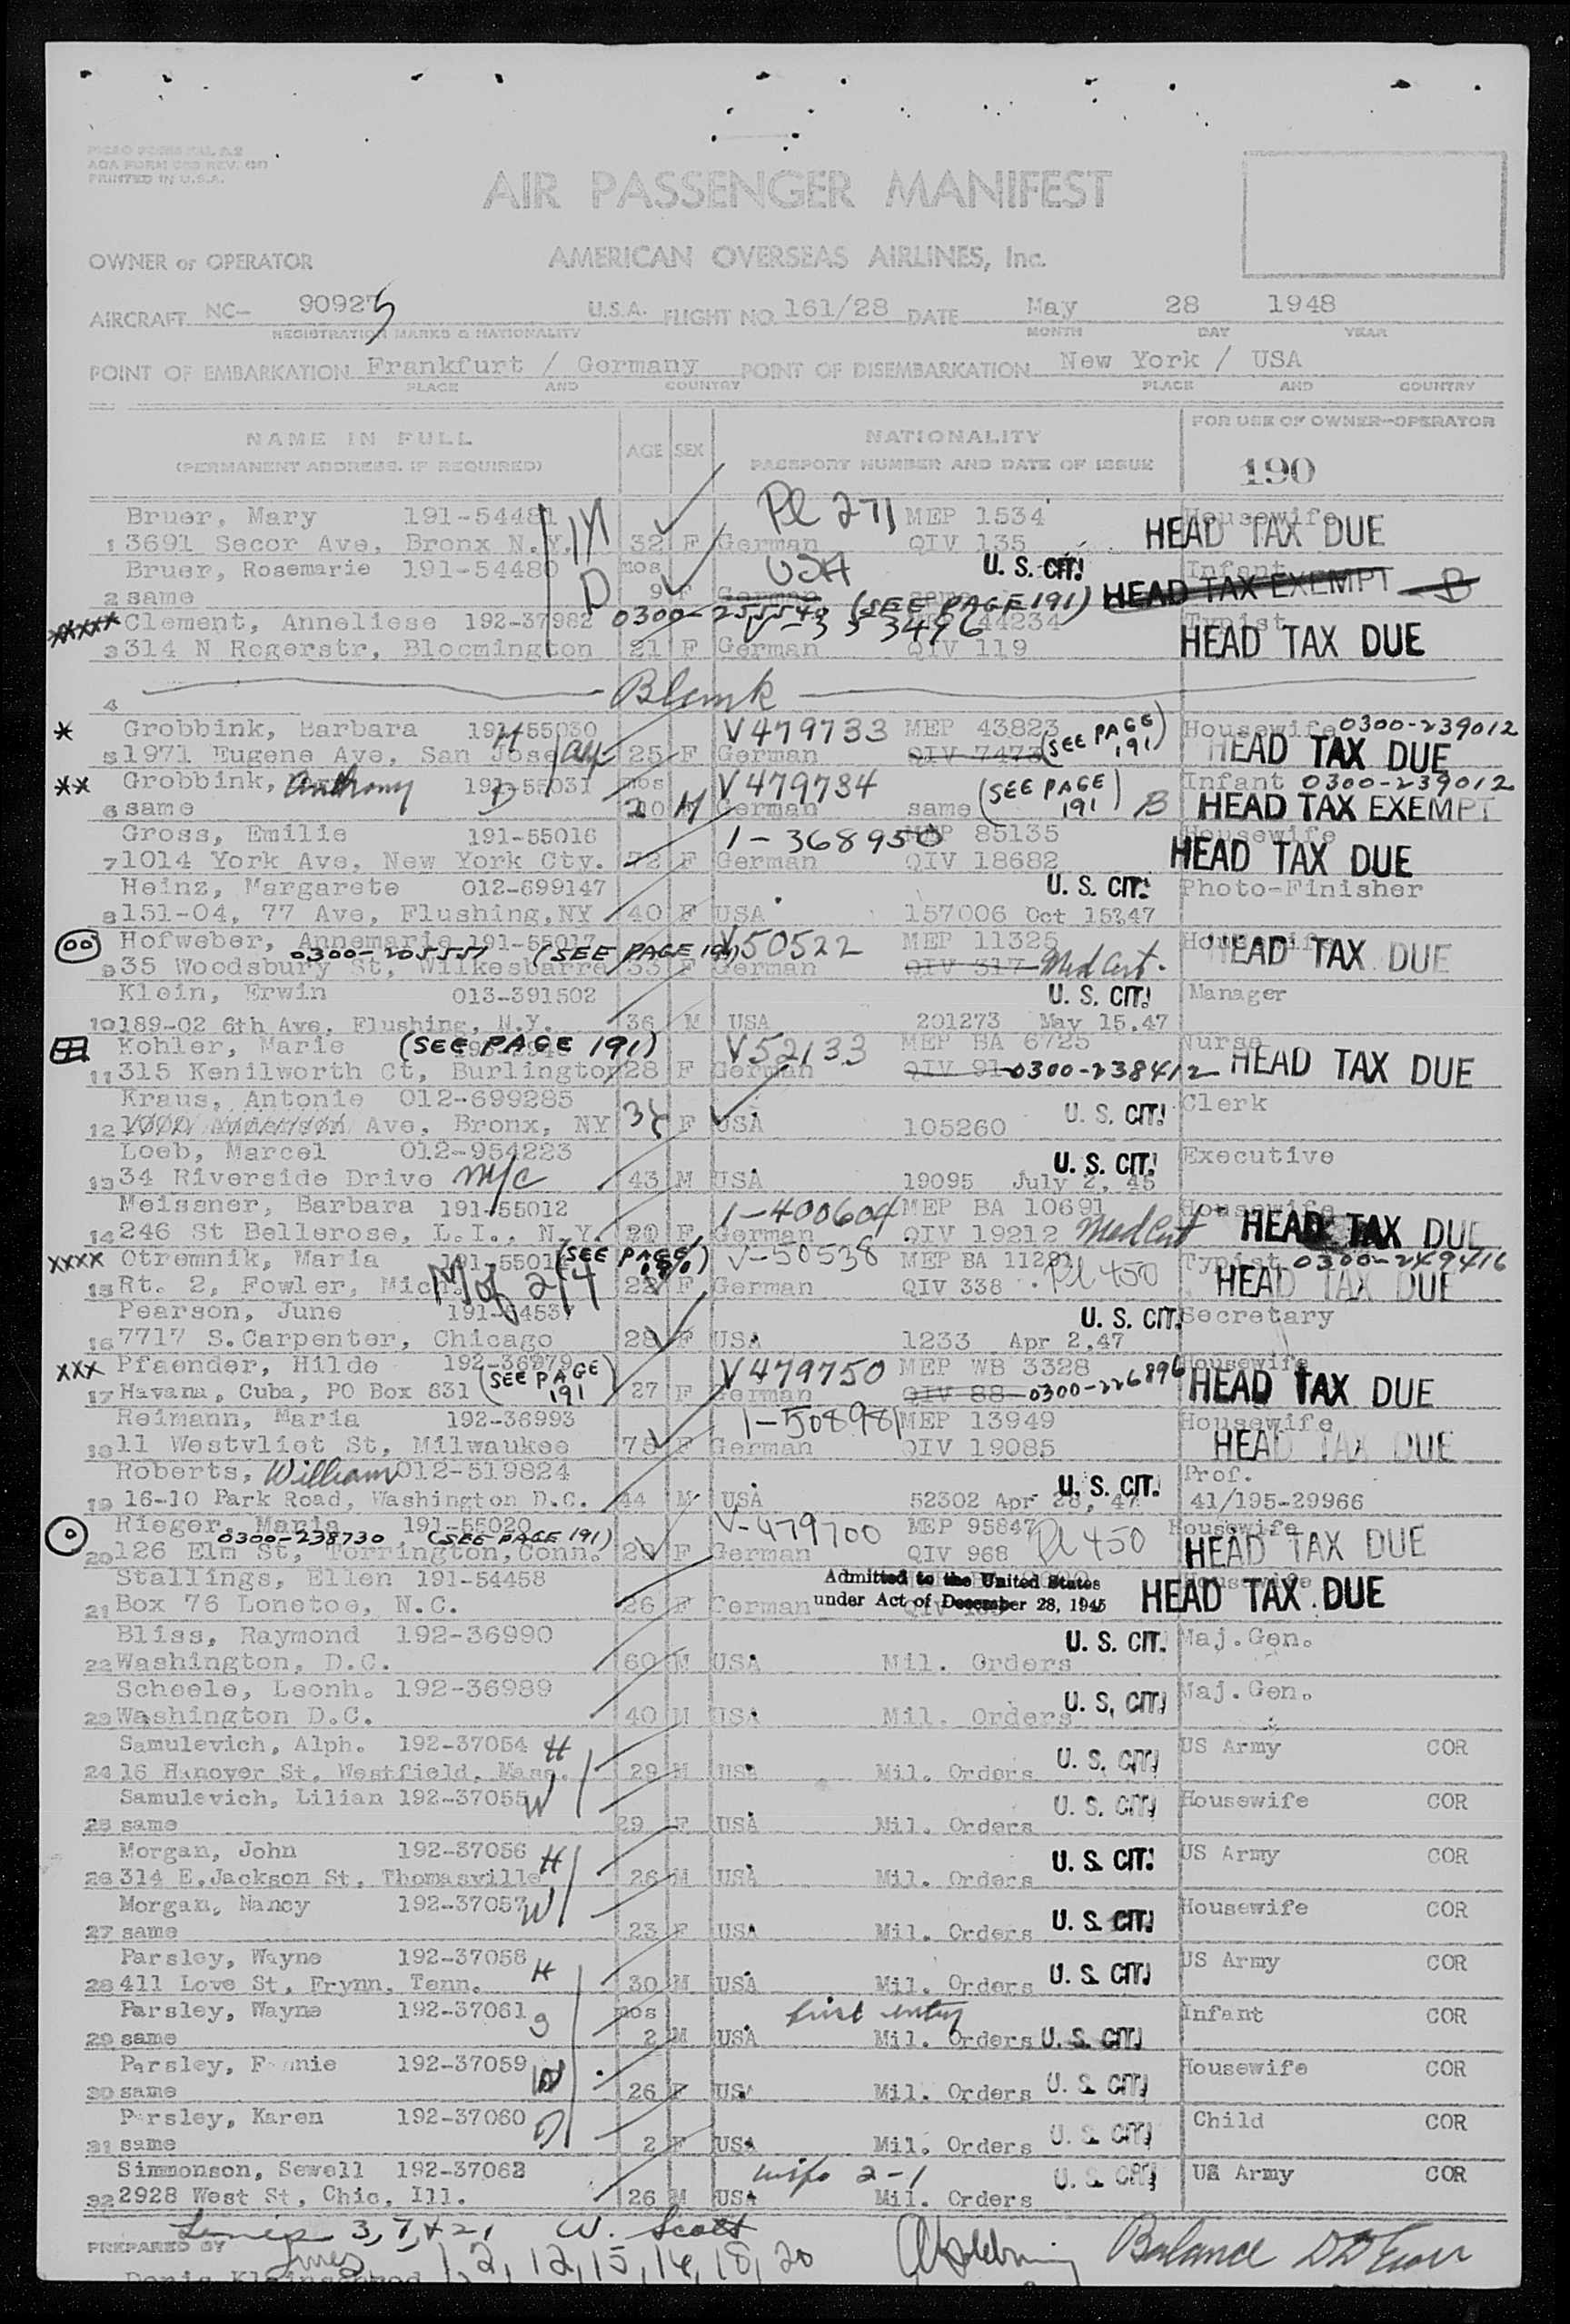 PRINTED IN U.S.A.
AIR PASSENGER MANIFEST
OWNER or OPERATOR AMERICAN OVERSEAS AIRLINES, Inc.
AIRCRAFT NC- 90925 U.S.A. FLIGHT NO. 161/28 DATE May 28 1948
REGISTRATION MARKS & NATIONALITY MONTH DAY YEAR
POINT OF EMBARKATION Frankfurt / Germany POINT OF DISEMBARKATION New York / USA
PLACE AND COUNTRY PLACE AND COUNTRY
NAME IN FULL AGE SEX NATIONALITY FOR USE OF OWNER-OPERATOR
(PERMANENT ADDRESS, IF REQUIRED) PASSPORT NUMBER AND DATE OF ISSUE 190
Bruer, Mary 191-54481 Pl 271 MEP 1534 Housewife
1 3691 Secor Ave, Bronx N.Y. 32 F German QIV 135 HEAD TAX DUE
Bruer, Rosemarie 191-54480 mos USA U. S. CIT. Infant
2 same D 9 F German same HEAD TAX EXEMPT B
0300-255540 (SEE PAGE 191)
xxxxx Clement, Anneliese 192-37982 V-353496 44234 Typist
3 314 N Rogerstr, Bloomington 21 F German QIV 119 HEAD TAX DUE
4 Blank
* Grobbink, Barbara 191-55030 V479733 MEP 43823 (SEE PAGE 191) Housewife 0300-239012
5 1971 Eugene Ave, San Jose 25 F German QIV 7473 HEAD TAX DUE
** Grobbink, Anthony 191-55031 mos V479734 (SEE PAGE 191) Infant 0300-239012
6 same 20 M German same B HEAD TAX EXEMPT
Gross, Emilie 191-55016 1-368950 MEP 85135 Housewife
7 1014 York Ave, New York Cty. 72 F German QIV 18682 HEAD TAX DUE
Heinz, Margarete 012-699147 U. S. CIT. Photo-Finisher
8 151-04, 77 Ave, Flushing, NY 40 F USA 157006 Oct 15,47
Hofweber, Annemarie 191-55017 V50522 MEP 11325 Housewife
0300-205557 (SEE PAGE 191)
9 35 Woodsbury St, Wilkesbarre 33 F German QIV 317 Med Cert. HEAD TAX DUE
Klein, Erwin 013-391502 U. S. CIT. Manager
10 189-02 6th Ave. Flushing, N.Y. 36 M USA 201273 May 15.47
Kohler, Marie (SEE PAGE 191) V52133 MEP BA 6725 Nurse
11 315 Kenilworth Ct, Burlington 28 F German QIV 91 0300-238412 HEAD TAX DUE
Kraus, Antonie 012-699285 U. S. CIT. Clerk
12 Ave, Bronx, NY F USA 105260
Loeb, Marcel 012-954223 U. S. CIT. Executive
13 34 Riverside Drive NYC 43 M USA 19095 July 2, 45
Meissner, Barbara 191-55012 1-400604 MEP BA 10691 Housewife
14 246 St Bellerose, L.I., N.Y. F German QIV 19212 Med Cert HEAD TAX DUE
xxxx Otremnik, Maria (SEE PAGE 190) V-50538 MEP BA 11281 Typist 0300-249416
15 Rt. 2, Fowler, Mich. 22 F German QIV 338 Pl 450 HEAD TAX DUE
Pearson, June 191-54537 U. S. CIT. Secretary
16 7717 S.Carpenter, Chicago 28 F USA 1233 Apr 2,47
xxx Pfaender, Hilde 192-36979 (SEE PAGE 191) V479750 MEP WB 3328 Housewife
17 Havana, Cuba, PO Box 631 27 F German QIV 88 0300-226896 HEAD TAX DUE
Reimann, Maria 192-36993 1-508981 MEP 13949 Housewife
18 11 Westvliet St, Milwaukee 75 F German QIV 19085 HEAD TAX DUE
Roberts, William 012-519824 U. S. CIT. Prof.
19 16-10 Park Road, Washington D.C. 44 M USA 52302 Apr 28, 47 41/195-29966
Rieger, Maria 191-55020 V-479700 MEP 95847 Housewife
0300-238730 (SEE PAGE 191)
20 126 Elm St, Torrington, Conn. F German QIV 968 Pl 450 HEAD TAX DUE
Stallings, Ellen 191-54458 Admitted to the United States Housewife
21 Box 76 Lonetoe, N.C. 26 F German under Act of December 28, 1945 HEAD TAX DUE
Bliss, Raymond 192-36990 U. S. CIT. Maj.Gen.
22 Washington, D.C. 60 M USA Mil. Orders
Scheele, Leonh. 192-36989 U. S. CIT. Maj.Gen.
23 Washington D.C. 40 M USA Mil. Orders
Samulevich, Alph. 192-37054 H U. S. CIT. US Army COR
24 16 Hanover St. Westfield, Mass. 29 M USA Mil. Orders
Samulevich, Lilian 192-37055 W U. S. CIT. Housewife COR
25 same 29 F USA Mil. Orders
Morgan, John 192-37056 H U. S. CIT. US Army COR
26 314 E.Jackson St, Thomasville 26 M USA Mil. Orders
Morgan, Nancy 192-37057 W U. S. CIT. Housewife COR
27 same 23 F USA Mil. Orders
Parsley, Wayne 192-37058 H U. S. CIT. US Army COR
28 411 Love St, Frynn, Tenn. 30 M USA Mil. Orders
Parsley, Wayne 192-37061 S mos first entry Infant COR
29 same 2 M USA Mil. Orders U. S. CIT.
Parsley, Fannie 192-37059 W Housewife COR
30 same 26 F USA Mil. Orders U. S. CIT.
Parsley, Karen 192-37060 D Child COR
31 same 2 F USA Mil. Orders U. S. CIT.
Simmonson, Sewell 192-37062 wife 2-1 U. S. CIT. US Army COR
32 2928 West St, Chic, Ill. 26 M USA Mil. Orders
Lines 3, 7, + 21 W. Scott
PREPARED BY Lines 1, 2, 12, 15, 16, 18, 20 Balance